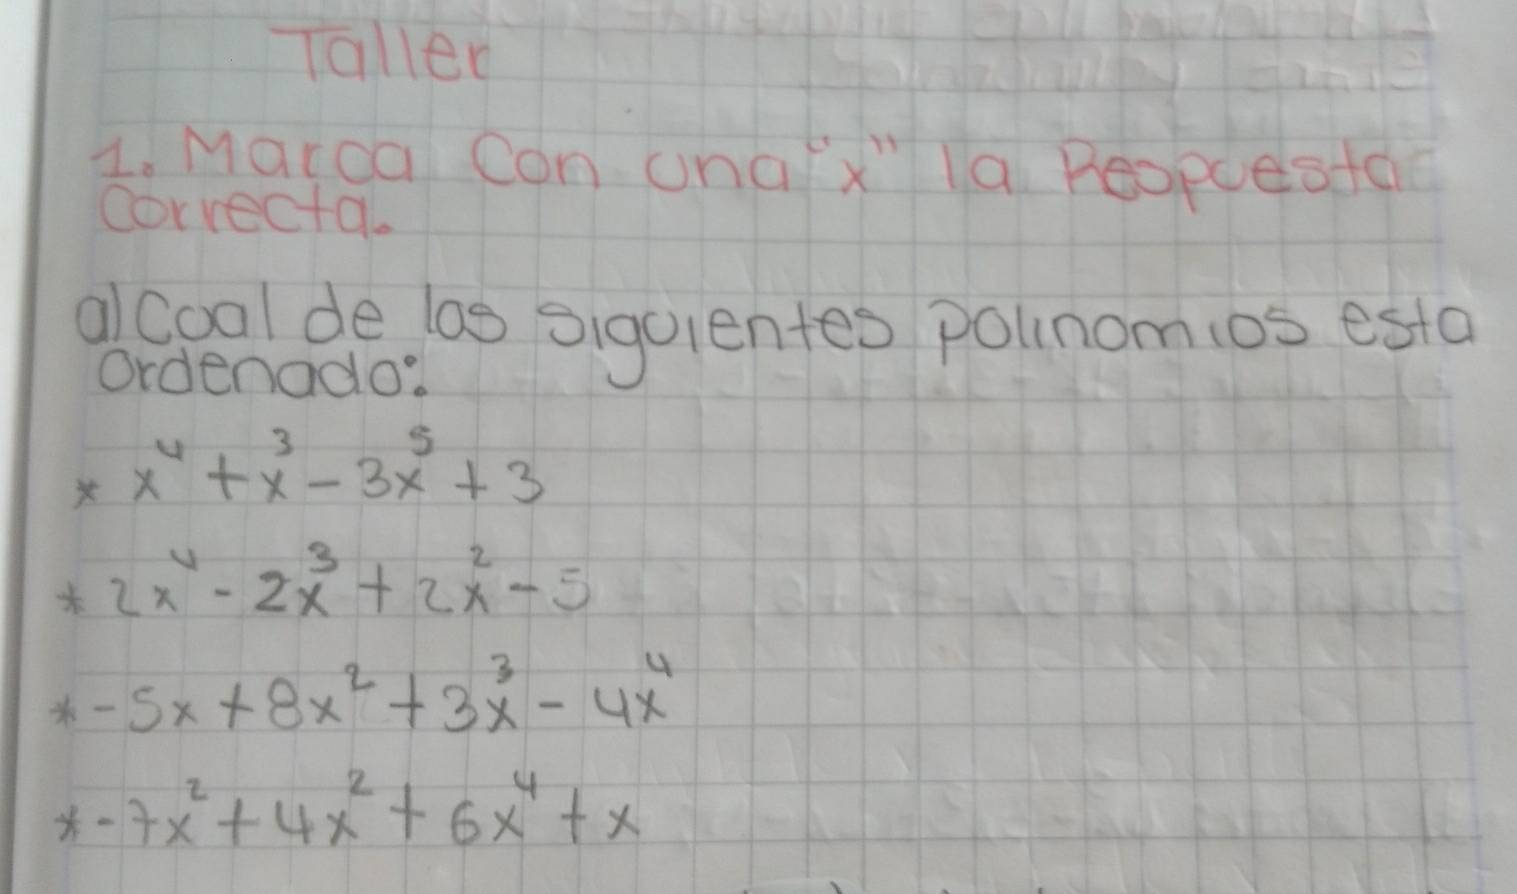 Taller
1. Marca Con una "x" la Respuesta
Correcta.
a) Cual de los siguientes polinomios esta
Ordenado:
* x⁴ + x³ - 3x⁵ + 3
* 2x⁴ - 2x³ + 2x² - 5
* - 5x + 8x² + 3x³ - 4x⁴
* - 7x² + 4x² + 6x⁴ + x